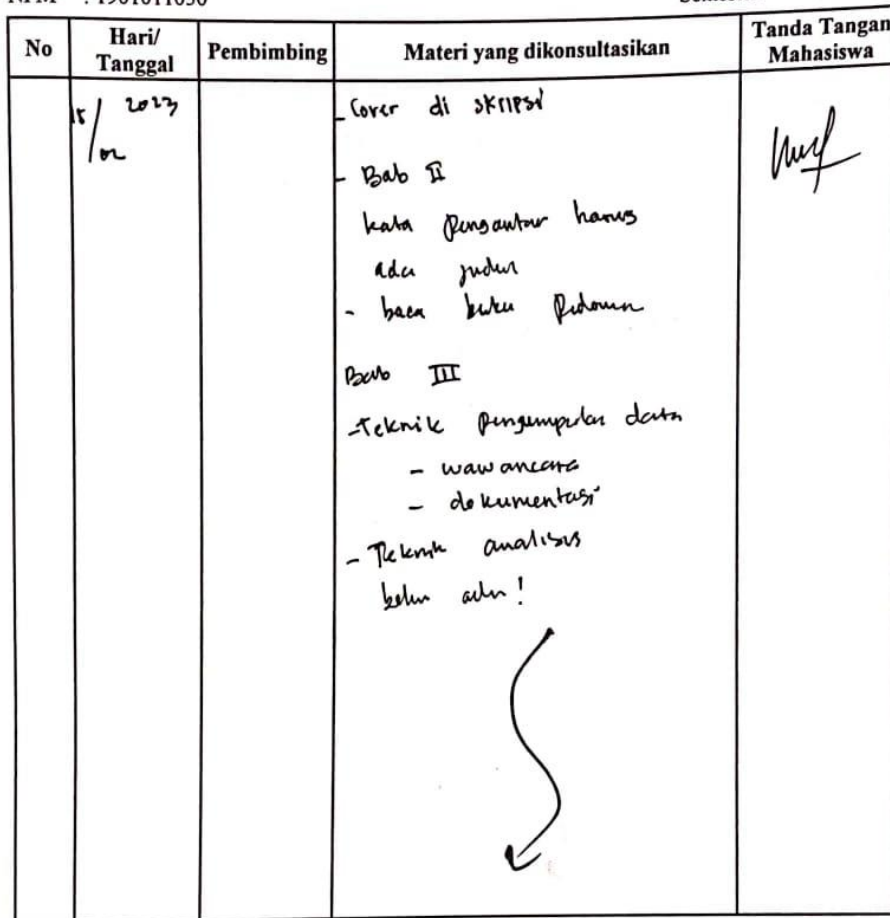 No
Hari/
Tanggal
Pembimbing
Materi yang dikonsultasikan
Tanda Tangan
Mahasiswa
15/ 2023
/02
- Cover di skripsi
- Bab II
kata pengantar harus
ada judul
- baca buku pedoman
Bab III
- Teknik pengumpulan data
- wawancara
- dokumentasi
- Teknik analisis
belum ada!